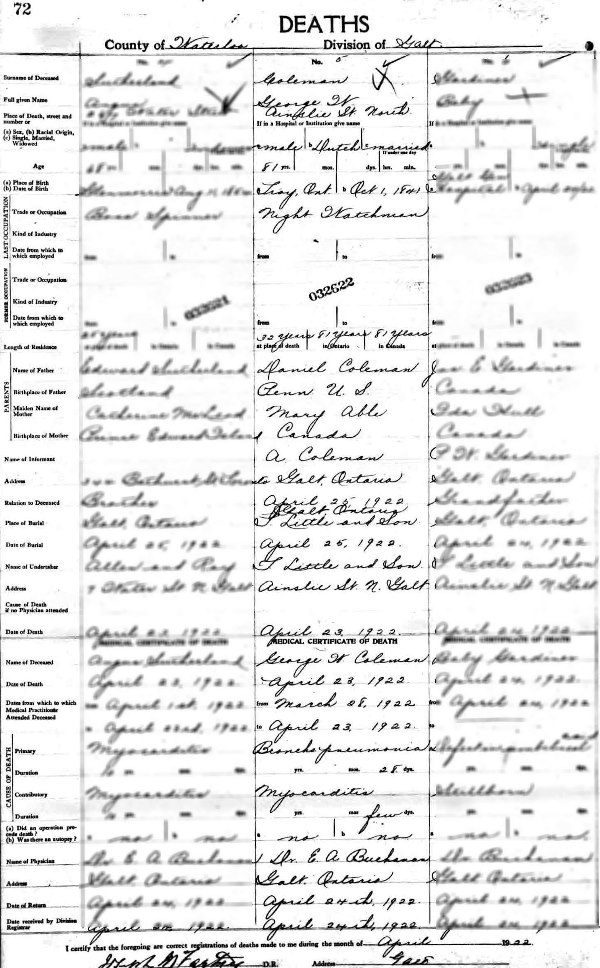 72
DEATHS
County of Waterloo Division of Galt
No. 5
Surname of Deceased Sutherland Coleman Gardiner
Full given Name Angus George W. Baby
Place of Death, street and number or Water Street Ainslie St. North
If in a Hospital or Institution give name
(a) Sex, (b) Racial Origin, (c) Single, Married, Widowed male male b Dutch c married
If under one day
Age 68 81 yrs. mos. dys. hrs. min.
(a) Place of Birth (b) Date of Birth Troy, Ont b Oct 1, 1841
LAST OCCUPATION
Trade or Occupation Boss Spinner Night Watchman
Kind of Industry
Date from which to which employed from to
FORMER OCCUPATION
Trade or Occupation
Kind of Industry 032621 032622 032623
Date from which to which employed from to
32 years 81 years 81 years
Length of Residence at place of death in Ontario in Canada
PARENTS
Name of Father Edward Sutherland Daniel Coleman Jas E Gardiner
Birthplace of Father Scotland Penn U.S. Canada
Maiden Name of Mother Catherine McLeod Mary Able Ida Hull
Birthplace of Mother Prince Edward Island Canada Canada
Name of Informant A. Coleman P. W. Gardiner
Address Bathurst St Toronto Galt, Ontario Galt, Ontario
Relation to Deceased Brother April 25, 1922 Grandfather
Galt, Ontario
Place of Burial Galt, Ontario T Little and Son Galt, Ontario
Date of Burial April 25, 1922. April 25, 1922. April 24, 1922.
Name of Undertaker Allen and Ray T Little and Son. T Little and Son
Address Water St N Galt Ainslie St. N. Galt Ainslie St N Galt
Cause of Death if no Physician attended
Date of Death April 22, 1922 April 23, 1922. April 24, 1922
MEDICAL CERTIFICATE OF DEATH MEDICAL CERTIFICATE OF DEATH MEDICAL CERTIFICATE OF DEATH
Name of Deceased Angus Sutherland George W Coleman Baby Gardiner
Date of Death April 23, 1922. April 23, 1922. April 24, 1922
Dates from which to which Medical Practitioner Attended Deceased April 1st, 1922 from March 28, 1922 from April 24, 1922
April 22nd, 1922 to April 23, 1922. to
CAUSE OF DEATH
Primary Myocarditis Broncho pneumonia
Duration yrs. mos. 28 dys.
Contributory Myocarditis Myocarditis Stillborn
Duration yrs mos few dys.
(a) Did an operation precede death? (b) Was there an autopsy? a no b no a no b no a no b no.
Name of Physician Dr. E. A. Buchanan Dr. E. A Buchanan Dr Buchanan
Address Galt Ontario Galt, Ontario Galt Ontario
Date of Return April 24, 1922 April 24th, 1922. April 24, 1922
Date received by Division Registrar April 24, 1922. April 24th, 1922. April 24, 1922
I certify that the foregoing are correct registrations of deaths made to me during the month of April 1922.
D.R. Address Galt